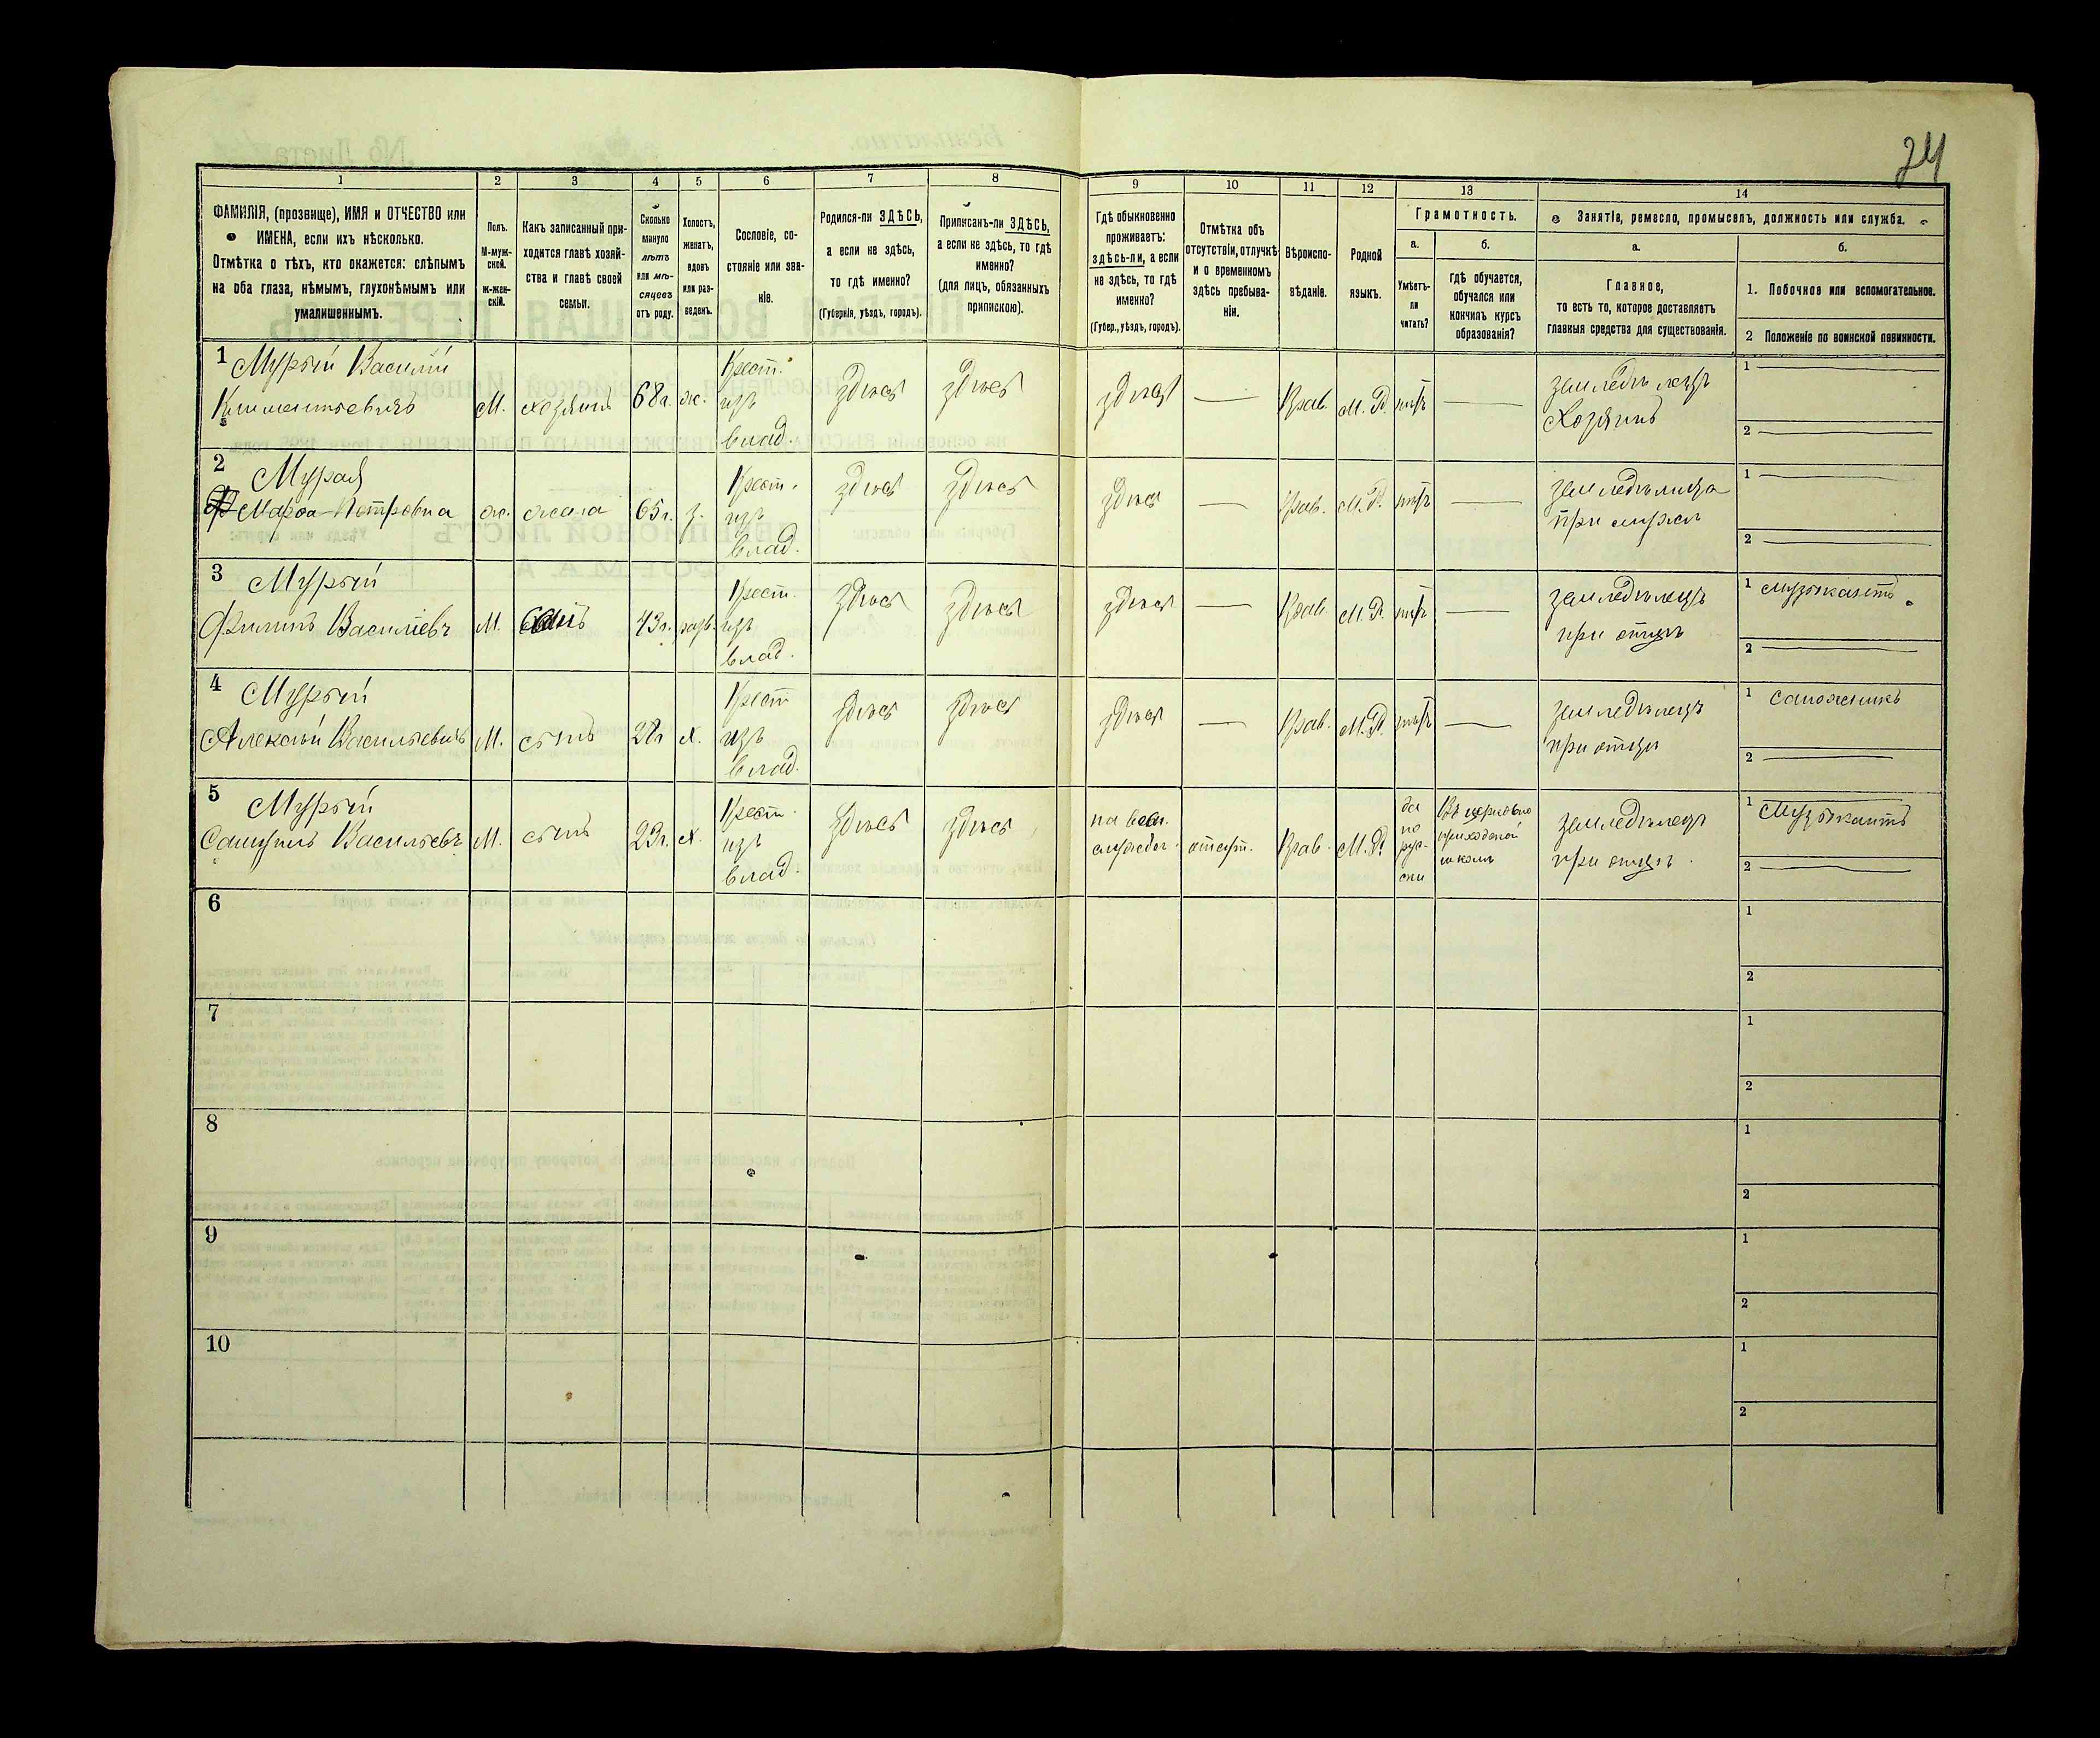 24
1 2 3 4 5 6 7 8 9 10 11 12 13 14
ФАМИЛІЯ, (прозвище), ИМЯ и ОТЧЕСТВО или
ИМЕНА, если ихъ нѣсколько.
Отмѣтка о тѣхъ, кто окажется: слѣпымъ
на оба глаза, нѣмымъ, глухонѣмымъ или
умалишеннымъ.
Полъ.
М-муж-
ской.
ж-жен-
скій.
Какъ записанный при-
ходится главѣ хозяй-
ства и главѣ своей
семьи.
Сколько
минуло
лѣтъ
или мѣ-
сяцевъ
отъ роду.
Холостъ,
женатъ,
вдовъ
или раз-
веденъ.
Сословіе, со-
стояніе или зва-
ніе.
Родился-ли ЗДѢСЬ,
а если не здѣсь,
то гдѣ именно?
(Губернія, уѣздъ, городъ).
Приписанъ-ли ЗДѢСЬ,
а если не здѣсь, то гдѣ
именно?
(для лицъ, обязанныхъ
припискою).
Гдѣ обыкновенно
проживаетъ:
здѣсь-ли, а если
не здѣсь, то гдѣ
именно?
(Губер., уѣздъ, городъ).
Отмѣтка объ
отсутствіи, отлучкѣ
и о временномъ
здѣсь пребыва-
ніи.
Вѣроиспо-
вѣданіе.
Родной
языкъ.
Грамотность.
а.
Умѣетъ-
ли
читать?
б.
гдѣ обучается,
обучался или
кончилъ курсъ
образованія?
Занятіе, ремесло, промыселъ, должность или служба.
а.
Главное,
то есть то, которое доставляетъ
главныя средства для существованія.
б.
1. Побочное или вспомогательное.
2 Положеніе по воинской повинности.
1 Мурый Василій
Климентьевичъ
М.
хозяинъ
68 г.
ж.
Крест.
изъ
влад.
здѣсь
здѣсь
здѣсь
—
Прав.
М. Р.
нѣтъ
—
земледѣлецъ
Хозяинъ
1 —
2 —
2 Мурая
Марѳа Петровна
ж.
жена
65 г.
з.
Крест.
изъ
влад.
здѣсь
здѣсь
здѣсь
—
Прав.
М. Р.
нѣтъ
—
земледѣлица
при мужѣ
1 —
2 —
3 Мурый
Филипъ Василіевъ
М.
Сынъ
43 г.
разв.
Крест.
изъ
влад.
здѣсь
здѣсь
здѣсь
—
Прав.
М. Р.
нѣтъ
—
земледѣлецъ
при отцѣ
1 музыкантъ
2 —
4 Мурый
Алексѣй Васильевичъ
М.
сынъ
х.
Крест
изъ
влад.
здѣсь
здѣсь
здѣсь
—
Прав.
М. Р.
нѣтъ
—
земледѣлецъ
при отцѣ
1 Сапожникъ
2 —
5 Мурый
Самуилъ Васильевъ
М.
сынъ
23 г.
х.
Крест.
изъ
влад.
здѣсь
здѣсь
на воен.
службѣ.
отсут.
Прав.
М. Р.
да
по
рус-
ски
Въ церковно
приходской
школѣ
земледѣлецъ
при отцѣ.
1 Музыкантъ
2 —
6
1
2
7
1
2
8
1
2
9
1
2
10
1
2